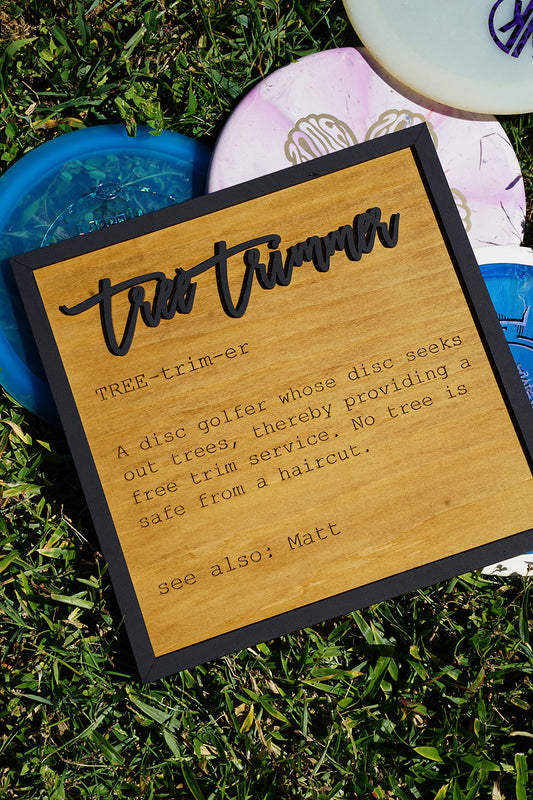 tree trimmer
TREE-trim-er
A disc golfer whose disc seeks
out trees, thereby providing a
free trim service. No tree is
safe from a haircut.
see also: Matt